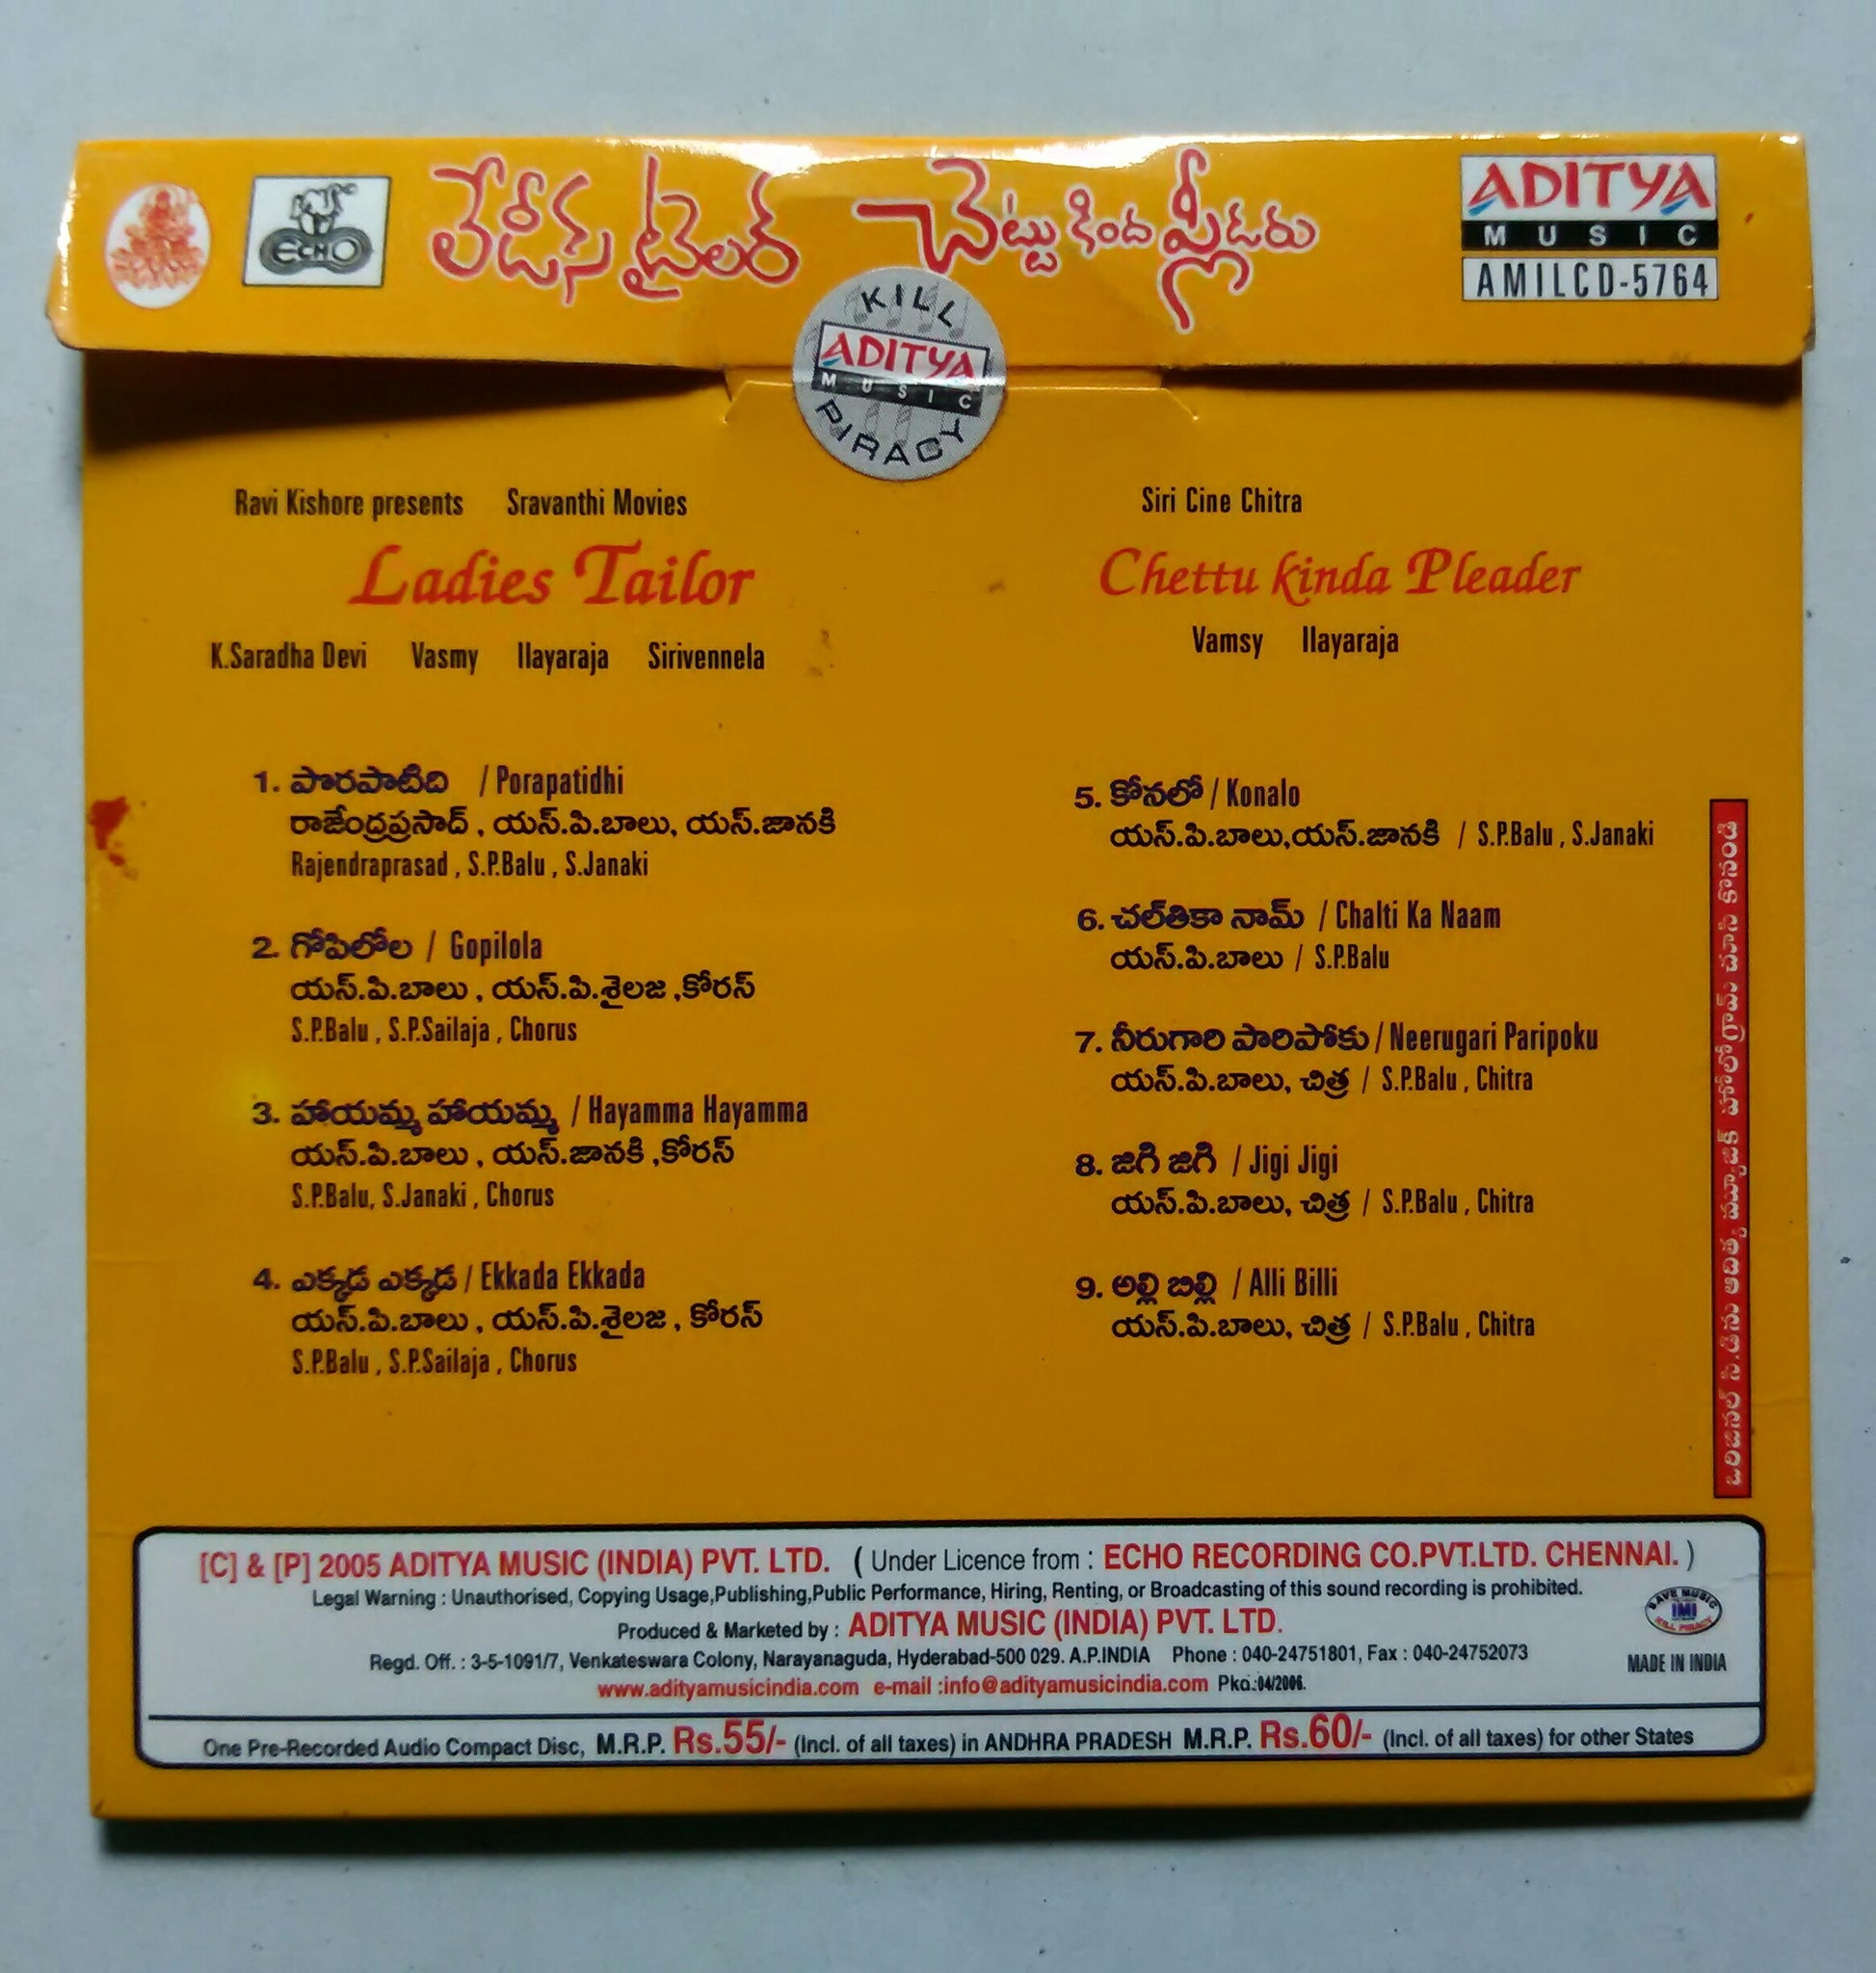 ECHO
లేడీస్ టైలర్
చెట్టు కింద ప్లీడరు
ADITYA
MUSIC
AMILCD-5764
KILL
ADITYA
MUSIC
PIRACY
Ravi Kishore presents Sravanthi Movies
Ladies Tailor
K.Saradha Devi Vasmy Ilayaraja Sirivennela
1. పొరపాటిది / Porapatidhi
రాజేంద్రప్రసాద్ , యస్.పి.బాలు, యస్.జానకి
Rajendraprasad , S.P.Balu , S.Janaki
2. గోపిలోల / Gopilola
యస్.పి.బాలు , యస్.పి.శైలజ ,కోరస్
S.P.Balu , S.P.Sailaja , Chorus
3. హాయమ్మ హాయమ్మ / Hayamma Hayamma
యస్.పి.బాలు , యస్.జానకి ,కోరస్
S.P.Balu, S.Janaki , Chorus
4. ఎక్కడ ఎక్కడ / Ekkada Ekkada
యస్.పి.బాలు , యస్.పి.శైలజ , కోరస్
S.P.Balu , S.P.Sailaja , Chorus
Siri Cine Chitra
Chettu kinda Pleader
Vamsy Ilayaraja
5. కోనలో / Konalo
యస్.పి.బాలు,యస్.జానకి / S.P.Balu , S.Janaki
6. చల్‌తికా నామ్ / Chalti Ka Naam
యస్.పి.బాలు / S.P.Balu
7. నీరుగారి పారిపోకు / Neerugari Paripoku
యస్.పి.బాలు, చిత్ర / S.P.Balu , Chitra
8. జిగి జిగి / Jigi Jigi
యస్.పి.బాలు, చిత్ర / S.P.Balu , Chitra
9. అల్లి బిల్లి / Alli Billi
యస్.పి.బాలు, చిత్ర / S.P.Balu , Chitra
ఒరిజినల్ సి.డి.ను ఆదిత్య మ్యూజిక్ హోలోగ్రామ్ చూసి కొనండి
[C] & [P] 2005 ADITYA MUSIC (INDIA) PVT. LTD. ( Under Licence from : ECHO RECORDING CO.PVT.LTD. CHENNAI. )
Legal Warning : Unauthorised, Copying Usage,Publishing,Public Performance, Hiring, Renting, or Broadcasting of this sound recording is prohibited.
Produced & Marketed by : ADITYA MUSIC (INDIA) PVT. LTD.
Regd. Off. : 3-5-1091/7, Venkateswara Colony, Narayanaguda, Hyderabad-500 029. A.P.INDIA Phone : 040-24751801, Fax : 040-24752073
www.adityamusicindia.com e-mail :info@adityamusicindia.com Pkd.:04/2006.
SAVE MUSIC
IMI
KILL PIRACY
MADE IN INDIA
One Pre-Recorded Audio Compact Disc, M.R.P. Rs.55/- (Incl. of all taxes) in ANDHRA PRADESH M.R.P. Rs.60/- (Incl. of all taxes) for other States